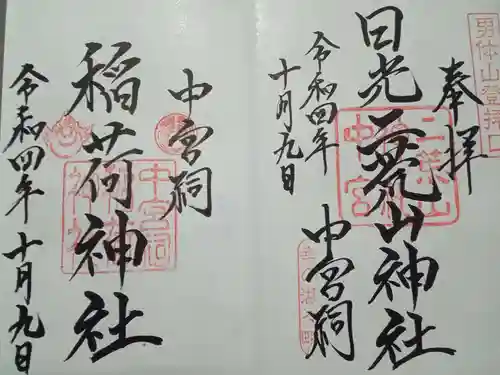 男体山登拝口
奉拝
日光二荒山神社
中宮祠
令和四年
十月九日
中宮祠
稲荷神社
令和四年十月九日